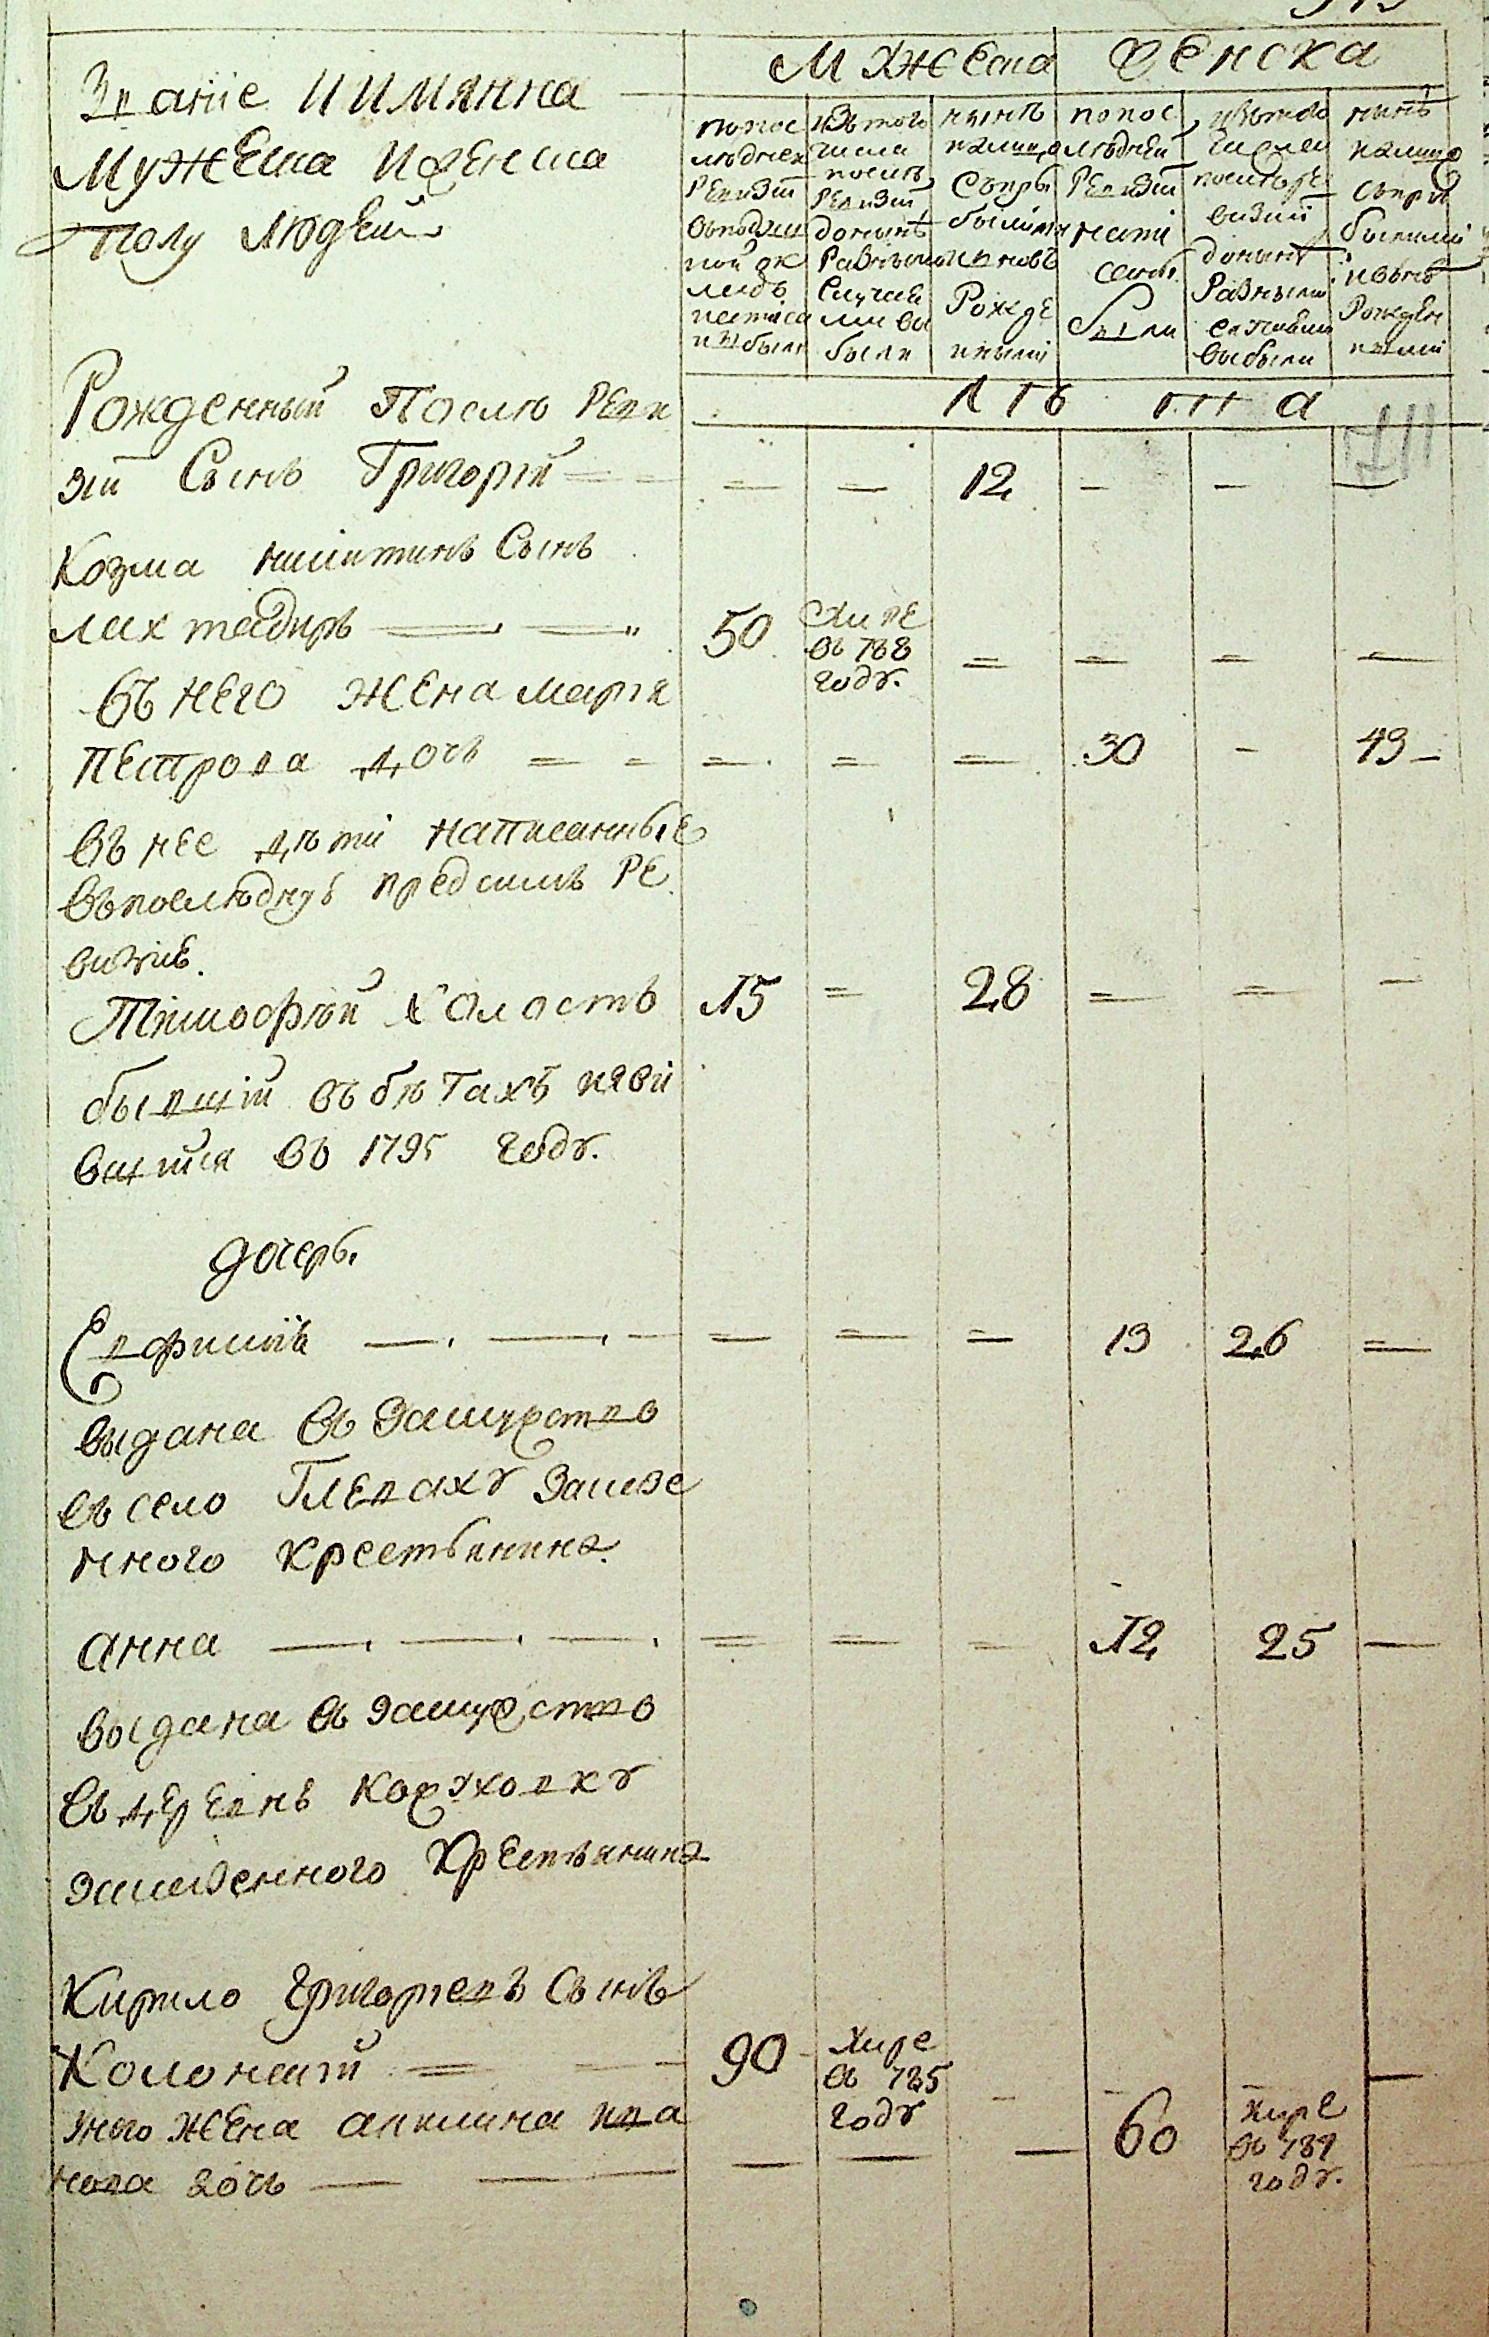 Званіе и имянна
мужеска и женска
полу людей
мужеска женска
попос
ледней
ревизіи
изъ того
числа
послѣ
ревизіи
донынѣ
разными
случая
ми вы
были
нынѣ
налицо
съ при
былыми
и вновь
рожде
нными
попос
ледней
ревизіи
были
изъ того
числа
после ре
визіи
донынѣ
разными
выбыли
нынѣ
налицо
съ при
былыми
и вновь
рожден
ными
лѣ та
Рожденный после реви
зіи сынъ Григорій 12
Козма никитинъ сынъ
50 Умре
въ 788
году.
въ него жена марія
петрова дочь 30 43
въ нее дѣти написанные
въ последнуь пред симъ ре
визіе.
Тимофѣй холостъ 15 28
бывшій въ бѣгахъ и яви
вшійся въ 1795 году.
дочерь.
Евфимія 13 26
выдана въ замужство
въ село Глеваху за казе
нного крестьянина.
анна 12 25
выдана въ замужство
въ деревнь Кожуховку
за казенного крестьянина
Кирило григориевъ сынъ
90 Умре
въ 785
году
у него жена акилина ива
нова дочь 60 умре
въ 789
году.